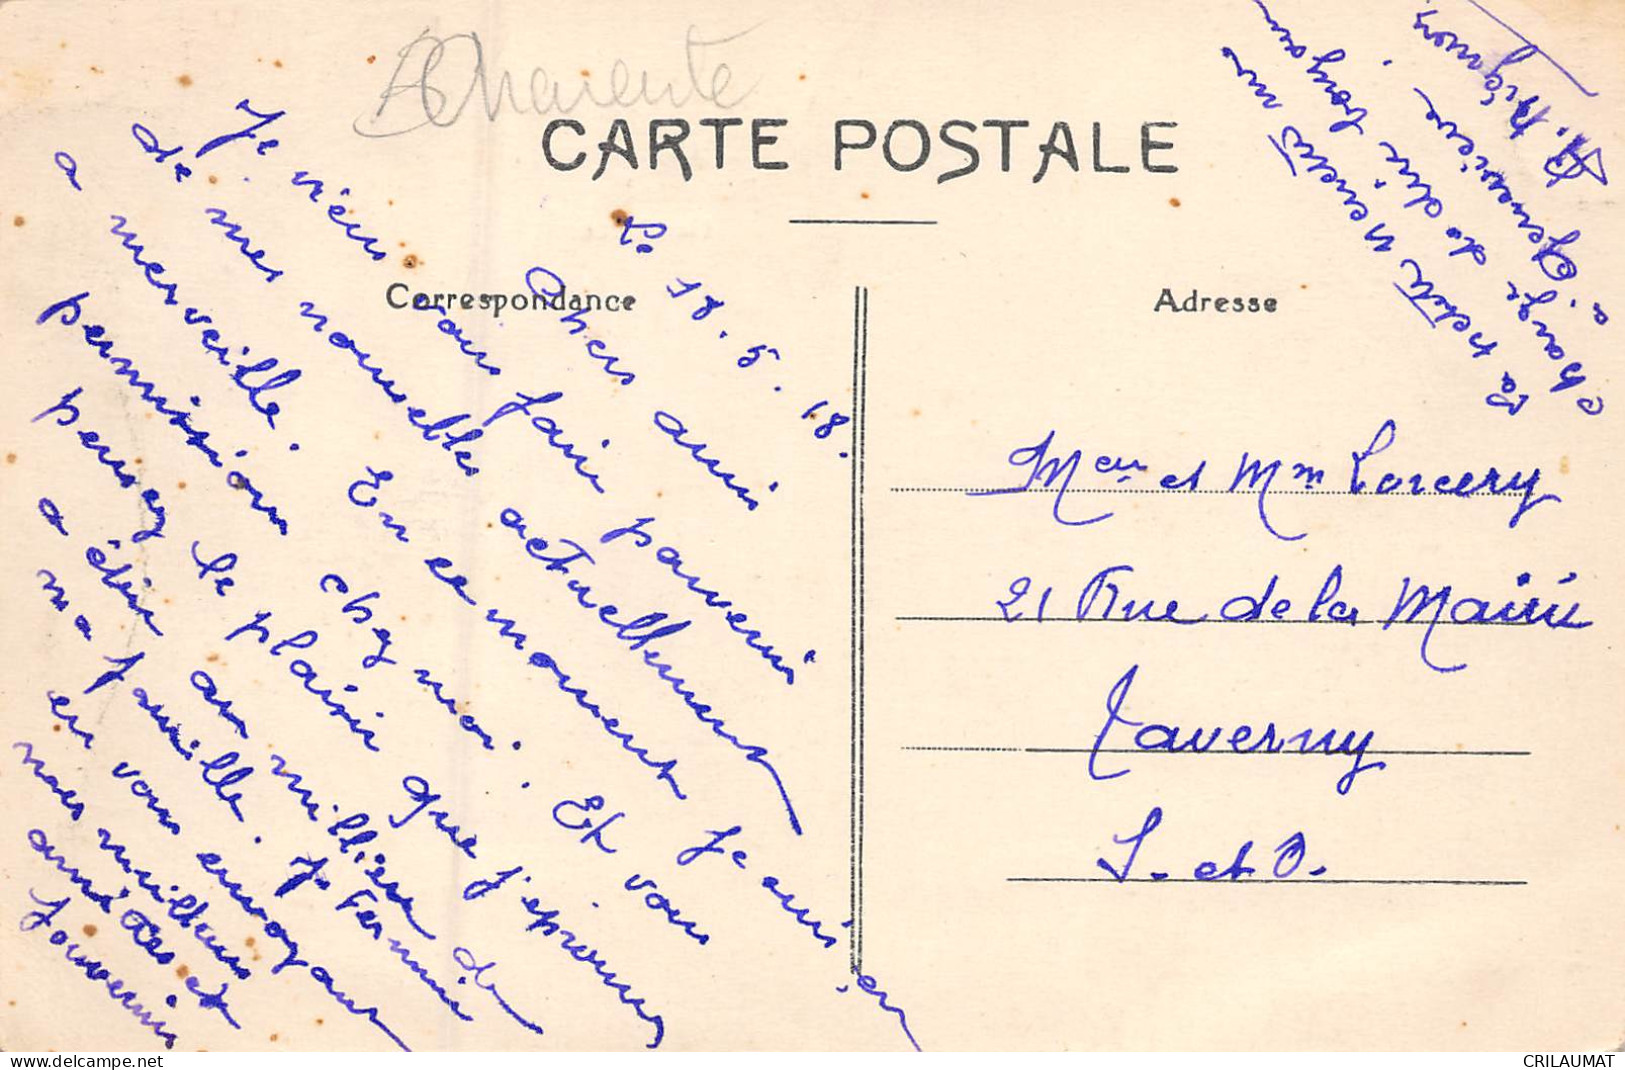 Charente
CARTE POSTALE
Correspondance
Adresse
Le 18.5.18.
Chers amis
Je viens vous faire parvenir
de mes nouvelles actuellement
a merveille. En ce moment je suis en
permission chez moi. Et vous
pensez le plaisir que j'éprouve
a être au millieu de
ma famille. Je termine
en vous envoyant
mes meilleurs
amitiés et
souvenirs
La petite
change de
a Germaine.
Meur et Mm Lorcery
21 Rue de la Mairie
Taverny
S. et O.
CRILAUMAT